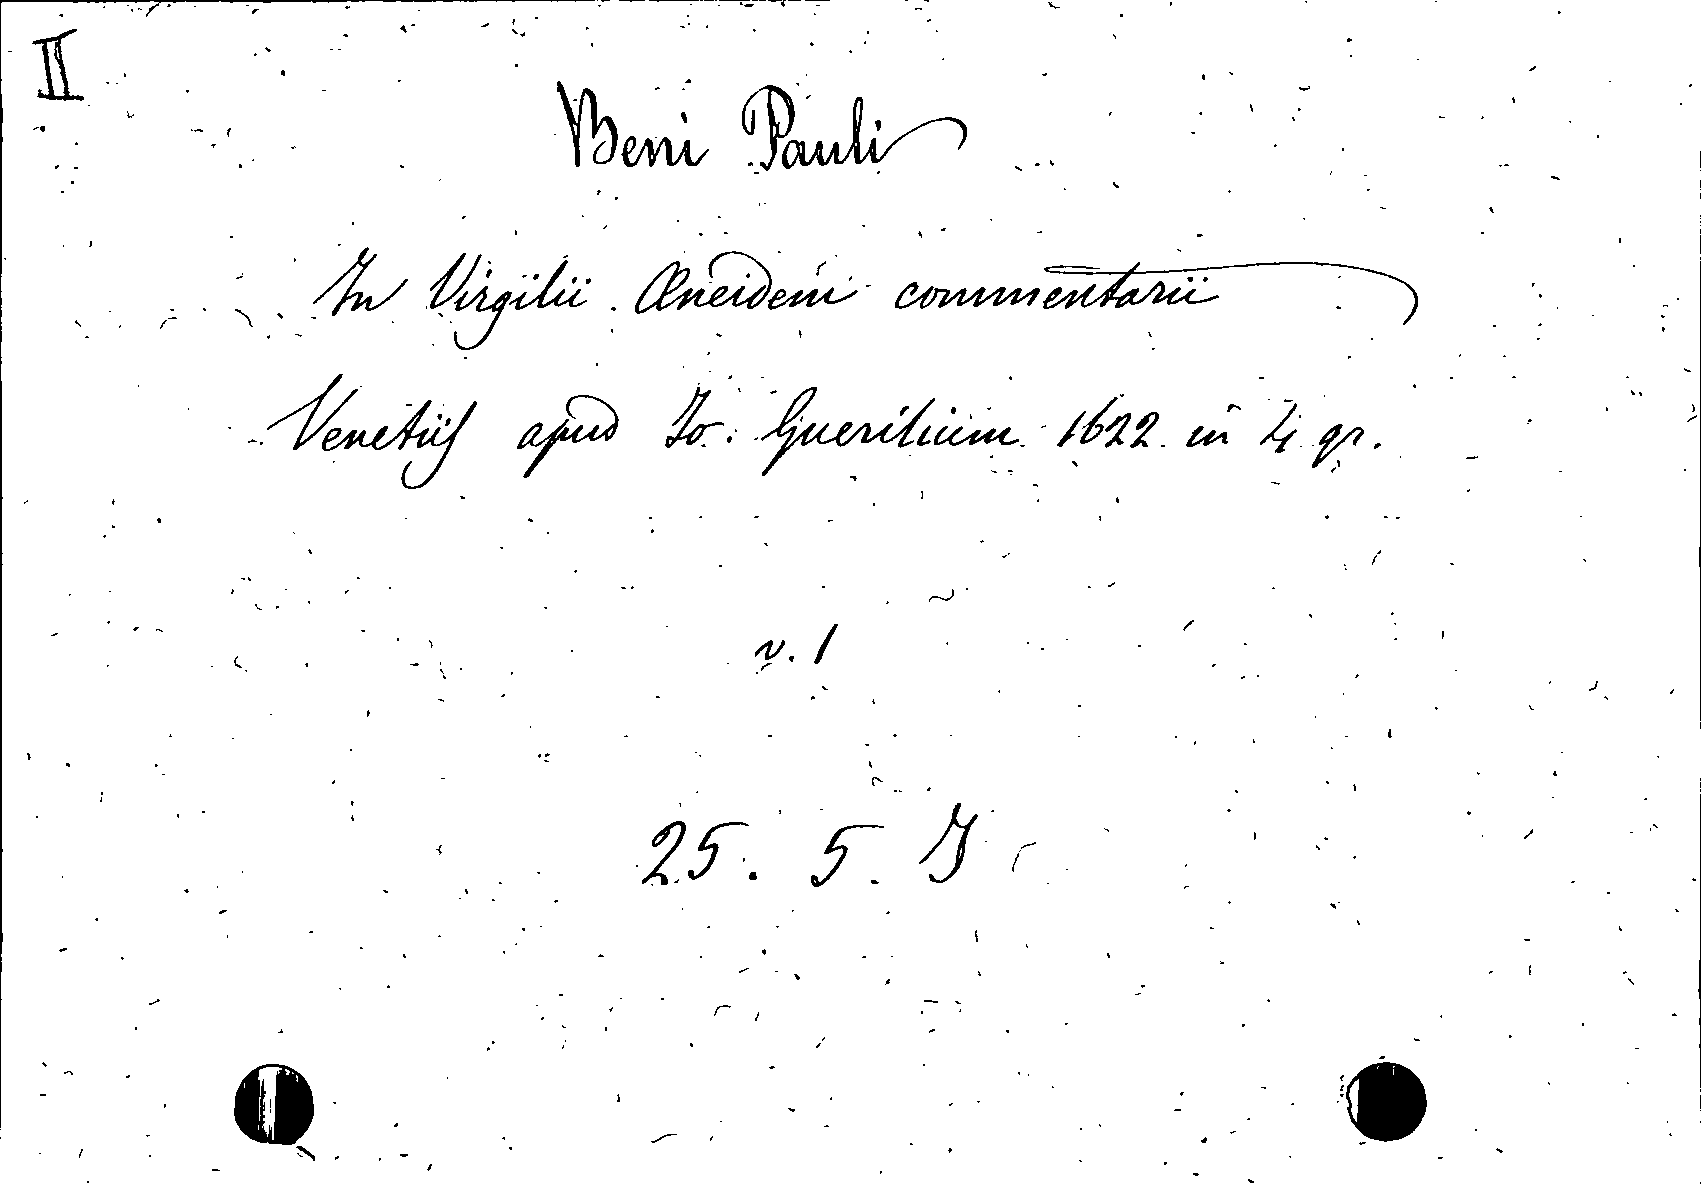 II
Beni Pauli
In Virgilii Œneidem commentarii
Venetiis apud Jo. Guerilium 1622 in 4 gr.
v. 1
25. 5. J